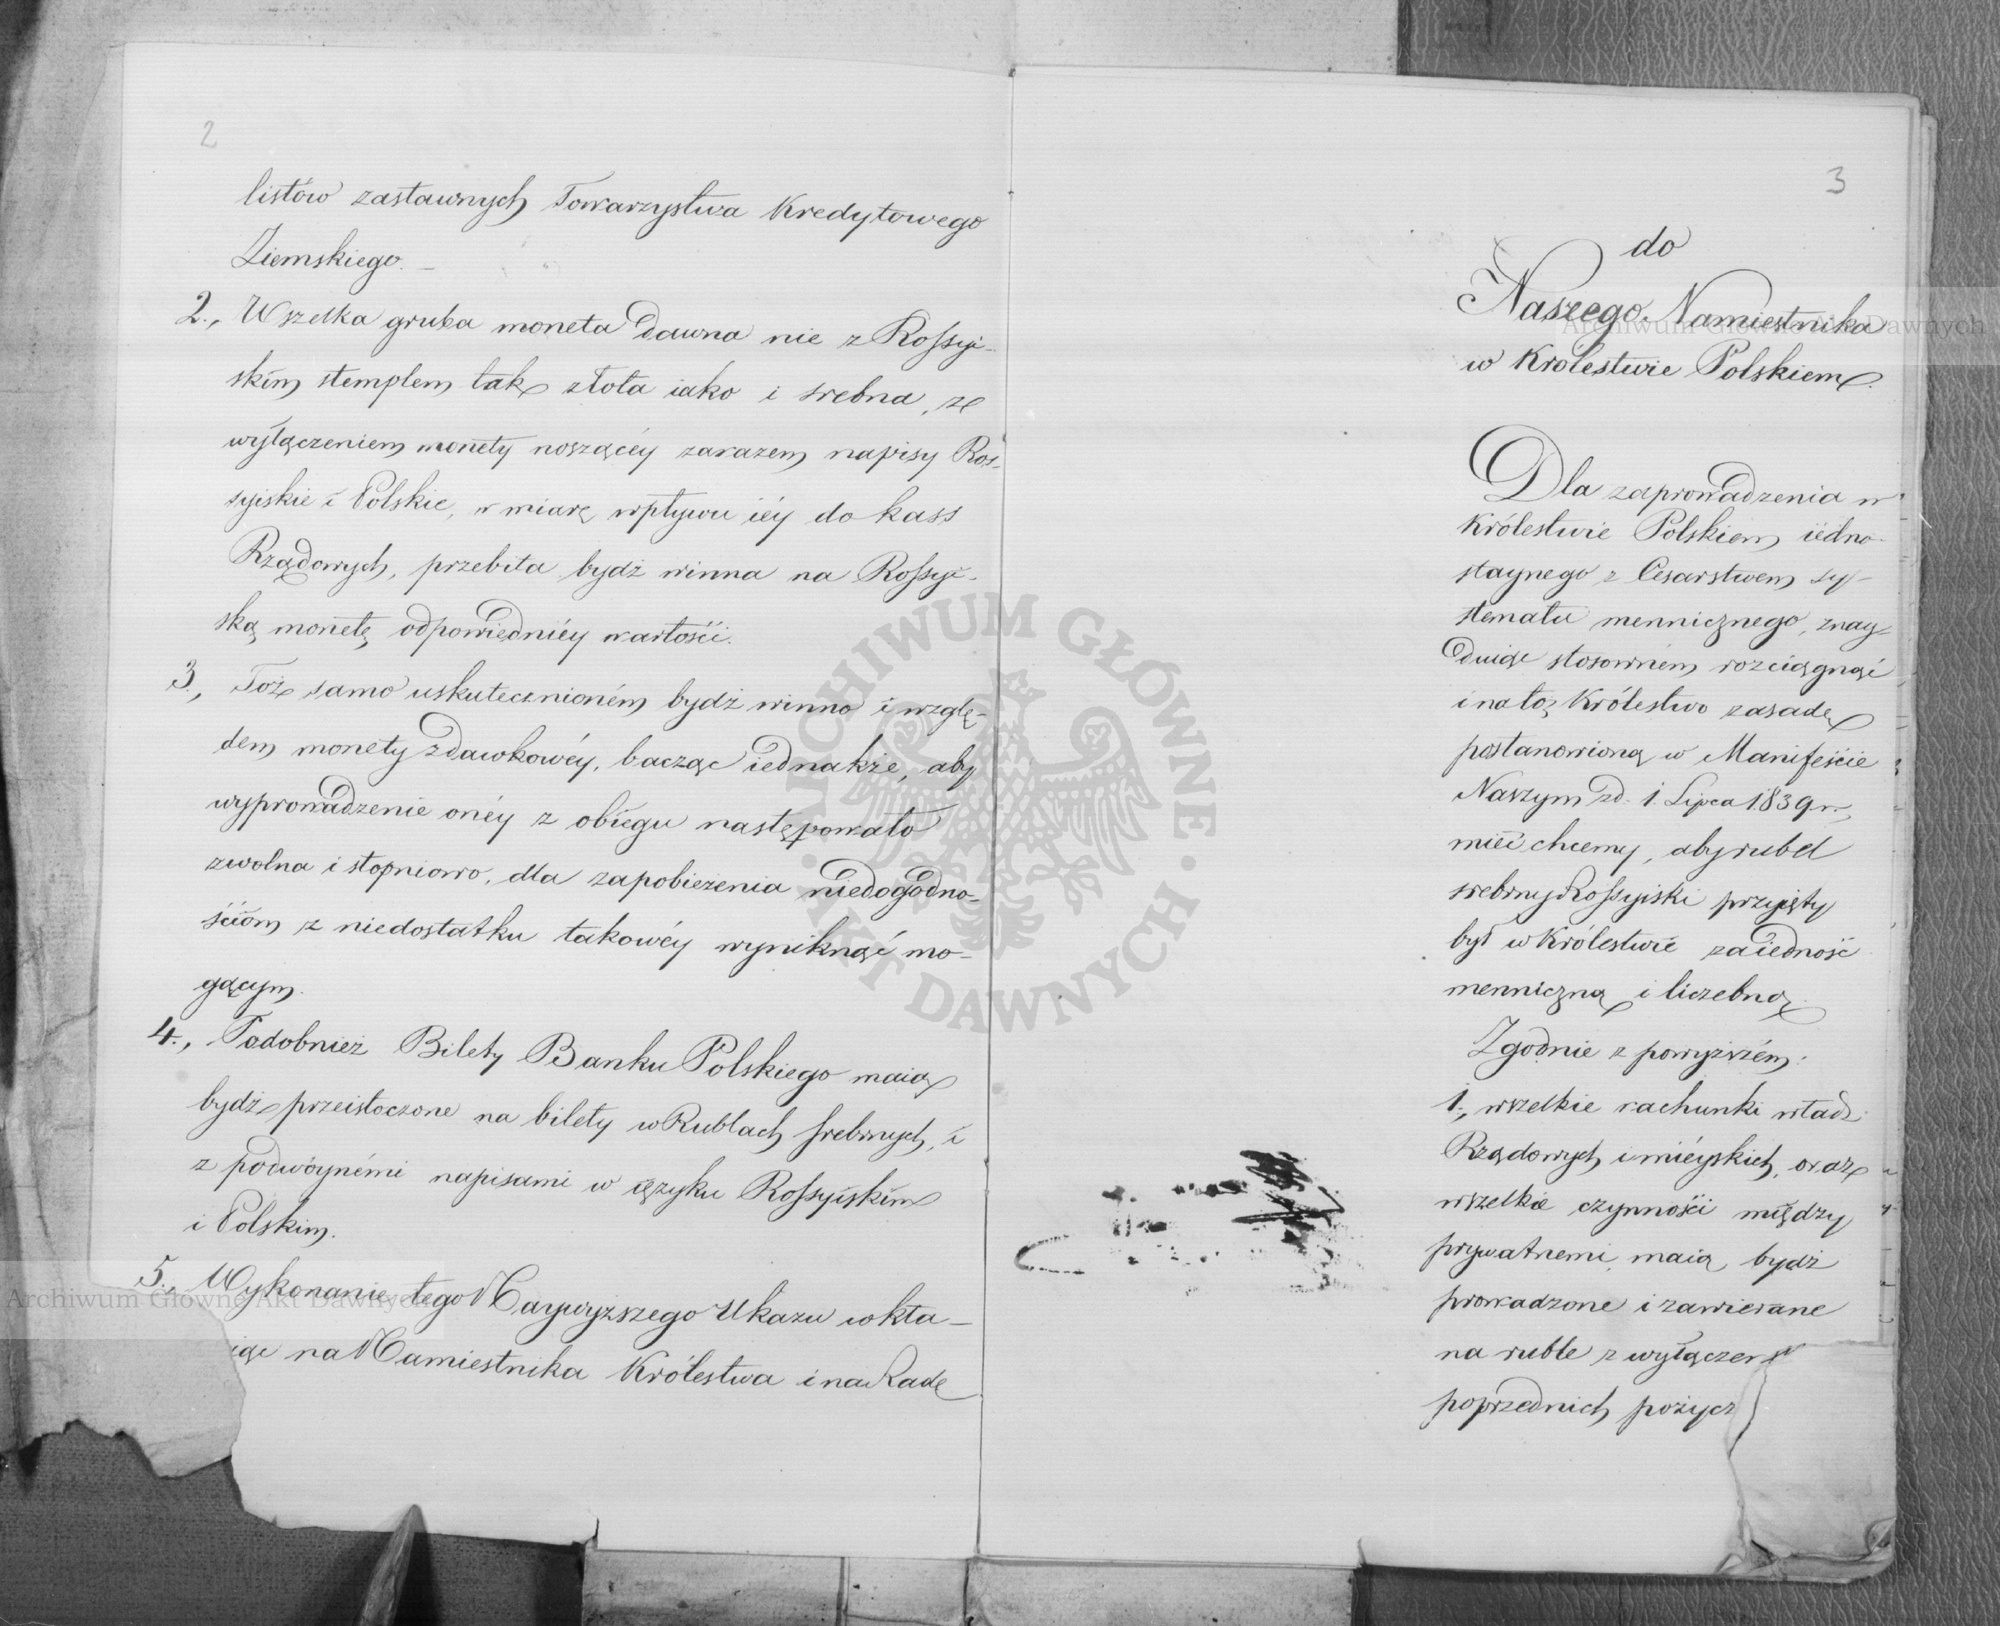 2
listów zastawnych Towarzystwa Kredytowego
Ziemskiego. —
2., Wszelka gruba moneta dawna nie z Rossyi-
skim stemplem tak złota iako i srebna, ze
wyłączeniem monety noszącéy zarazem napisy Ros-
syiskie i Polskie, w miarę wpływu iéy do kass
Rządowych, przebita bydź winna na Rossyi-
ską monetę odpowiedniéy wartości.
3., Toż samo uskutecznioném bydź winno i wzglę-
dem monety zdawkowéy, bacząc iednakże, aby
wyprowadzenie onéy z obiegu następowało
zwolna i stopniowo, dla zapobieżenia niedogodno-
ściom z niedostatku takowéy wyniknąć mo-
gącym.
4., Podobnież Bilety Banku Polskiego maią
bydź przeistoczone na bilety w Rublach srebrnych, i
z podwóynémi napisami w ięzyku Rossyiskim
i Polskim.
5., Wykonanie tego Naywyższego Ukazu wkła-
iąc na Namiestnika Królestwa i na Radę
3
do
Naszego Namiestnika
w Królestwie Polskiem.
Dla zaprowadzenia w
Królestwie Polskiem iedno-
staynego z Cesarstwem sy-
stematu mennicznego, znay-
duiąc stosowném rozciągnąć
i na toż Królestwo zasadę
postanowioną w Manifeście
Naszym z d. 1. Lipca 1839 r.,
mieć chcemy, aby rubel
srebrny Rossyiski przyięty
był w Królestwie za iedność
menniczną i liczebną.
Zgodnie z powyższém:
1., wszelkie rachunki władz
Rządowych i mieyskich, oraz
wszelkie czynności między
prywatnemi, maią bydź
prowadzone i zawierane
na ruble z wyłączen
poprzednich pożycz
Archiwum Główne Akt Dawnych
Archiwum Główne Akt Dawnych
ARCHIWUM GŁÓWNE AKT DAWNYCH